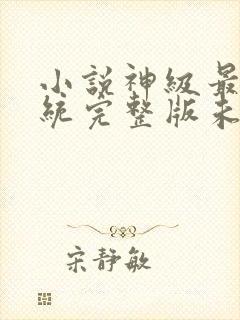 小說神級最
統完整版未
宋靜敏